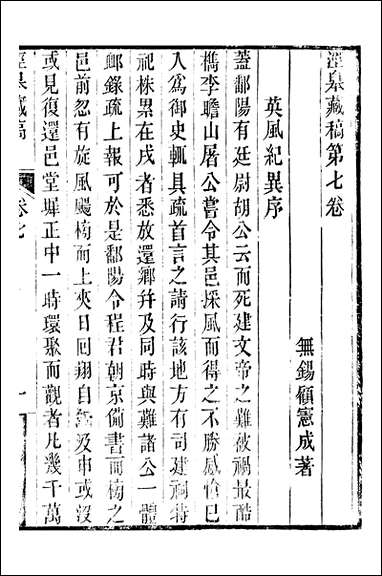 涇臯藏稿第七卷
無錫顧憲成著
英風紀異序
蓋鄱陽有廷尉胡公云而死建文帝之難被禍最酷
檇李瞻山屠公嘗令其邑採風而得之不勝感愴已
入為御史輒具疏首言之請行該地方有司建祠特
祀株累在戌者悉放還鄉幷及同時與難諸公一體
卹錄疏上報可於是鄱陽令程君朝京備書而榜之
邑前忽有旋風颺榜而上夾日回翔自 及申或沒
或見復還邑堂墀正中一時環聚而觀者凡幾千萬
涇臯藏稿
卷七
一